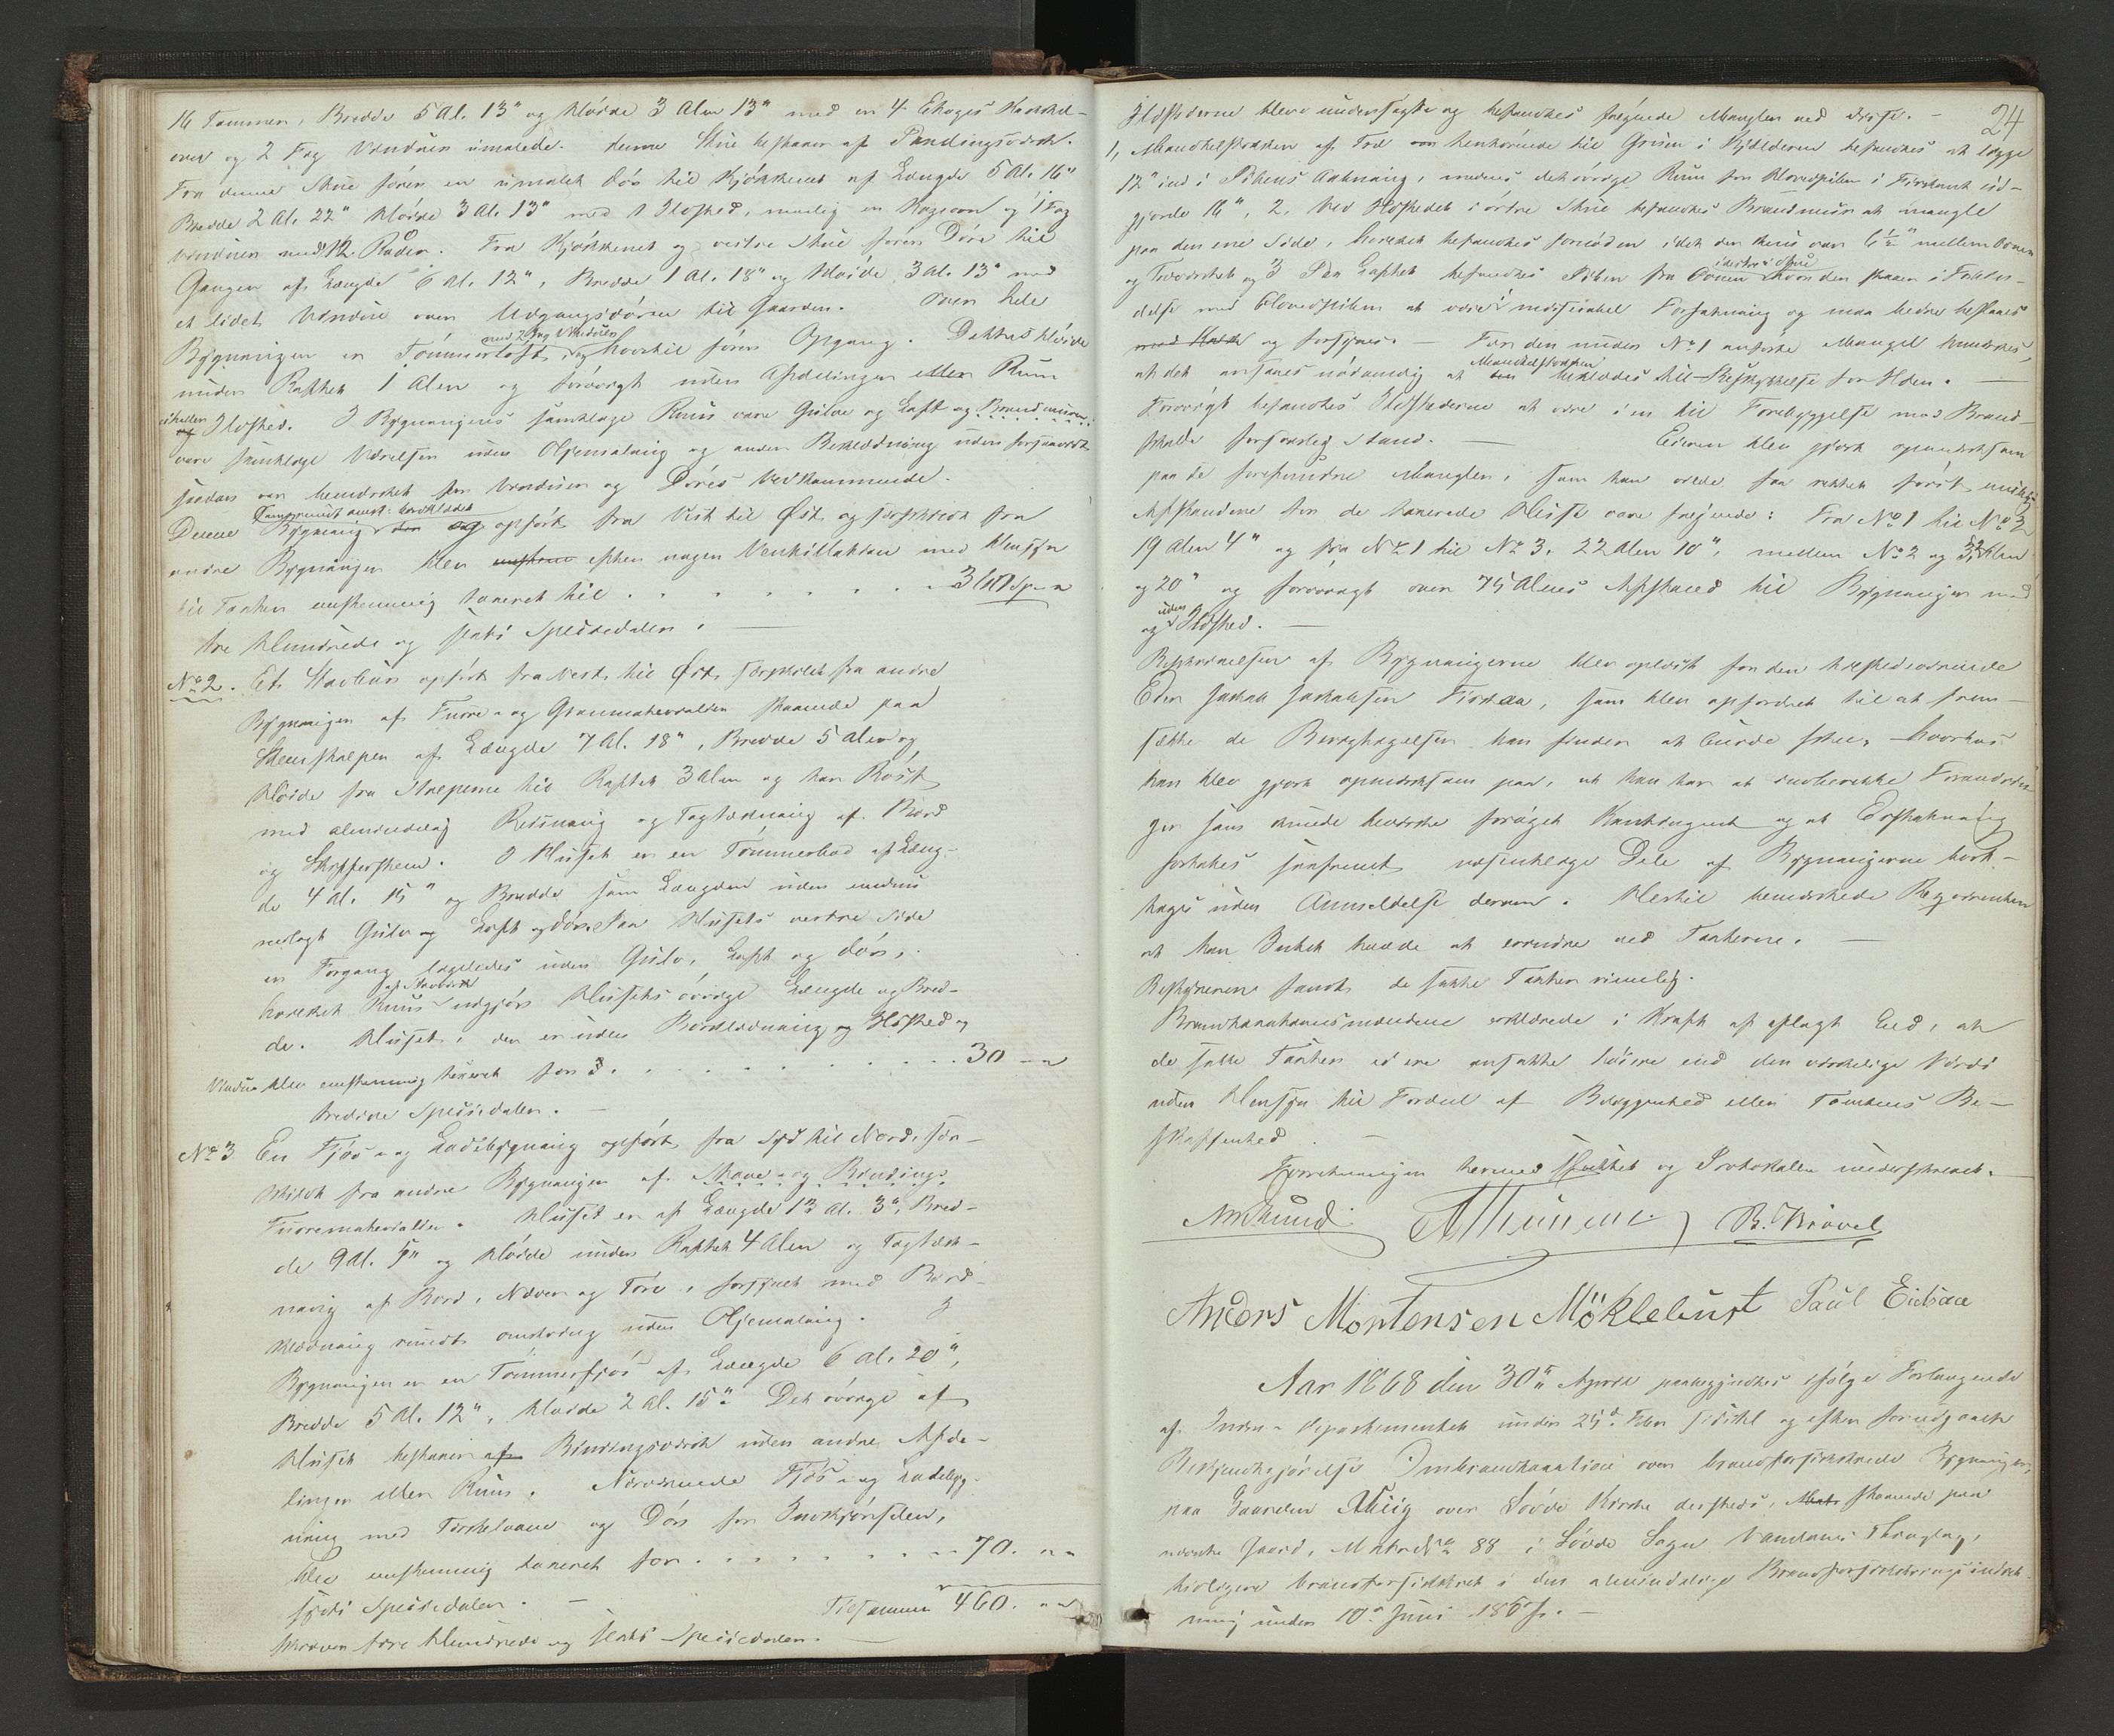 16 Tommer, Bredde 5 Al. 13" og Høide 3 Alen 13" med en 4 Etages Kakkel-
ovn og 2 Fag Vinduer umalede. Denne Stue bestaaer af Bindingsværk.
Fra denne Stue fører en umalet Dør til Kjøkkenet af Længde 5 Al. 16"
Bredde 2 Al. 22" Høide 3 Al. 13" med 1 Ildsted, nemlig en Bageovn og 1 Fag
Vinduer med 12 Ruder. Fra Kjøkkenet og vestre Stue fører Døre til
Gangen af Længde 6 Al. 12", Bredde 1 Al. 18" og Høide 3 Al. 13" med
et lidet Vindue over Udgangsdøren til Gaarden. Over hele
med 2 Fag Vinduer
Bygningen er Tømmerloft, og hvortil fører Opgang. Dettes Høide
under Raftet 1 Alen og forøvrigt uden Afdelinger eller Rum
eller Ildsted. I Bygningens samtlige Rum vare Gulve og Loft og Brandmure.
vare samtlige Værelser uden Oljemaling og anden Beklædning uden forsaavidt
saadan var bemærket for Vinduer og Døres Vedkommende.
Denne Bygning opført fra Vest til Øst og særskilt fra
andre Bygninger blev efter nogen Ventillation med Hensyn
til Taxten enstemmig taxeret til . . . . . . . 360 Sp " "
tre Hundrede og sexti Speciedaler. —
No 2. Et Stabbur opført fra Vest til Øst særskilt fra andre
Bygninger af Furre- og Granmaterialier staaende paa
Steenstolper af Længde 7 Al. 18", Bredde 5 Alen og
Høide fra Stolperne til Raftet 3 Alen og har Røst
med almindelig Reisning og Tagtækning af Bord
og Skifersteen. I Huset er en Tømmerbod af Læng-
de 4 Al. 15" og Bredde som Længden uden
Gulv og Loft og Dør. Paa Husets vestre Side
en Forgang ligeledes uden Gulv, Loft og Dør,
af Stavværk
hvilket Rum udgjør Husets øvrige Længde og Bred-
de. Huset, der er uden Bordklædning og Ildsted og
Vindue blev enstemmig taxeret for . . . . . . . 30 " "
tredive Speciedaler. —
No 3 En Fjøs- og Ladebygning opført fra Syd til Nord, sær-
skilt fra andre Bygninger af Stave- og Bindings
Furrematerialier. Huset er af Længde 13 Al. 3", Bred-
de 9 Al. 5" og Høide under Raftet 4 Alen og Tagtæk-
ning af Bord, Næver og Tørv, forsynet med Bord-
klædning rundt omkring uden Oljemaling. I
Bygningen er en Tømmerfjøs af Længde 6 Al. 20",
Bredde 5 Al. 12", Høide 2 Al. 15". Det øvrige af
Huset bestaaer af Bindingsværk uden andre Afde-
linger eller Rum. Nærværende Fjøs- og Ladebyg-
ning med Tærskelaave og Dør for Indkjørselen,
blev enstemmig taxeret for . . . . . . . 70. " "
sytti Speciedaler. —
Tilsammen 460. " "
skriver fire Hundrede og sexti Speciedaler. —
24
Ildstederne bleve undersøgte og befandtes følgende Mangler ved disse. —
1, Mandkelstokken af Træ henhørende til Gruen i Kjælderen befandtes at ligge
12" ind i Pibens Aabning, medens det øvrige Rum for Hovedpiben i Firkant ud-
gjorde 16", 2, Ved Ildstedet i østre Stue befandtes Brandmur at mangle
paa den ene Side, hvilket befandtes fornøden idet der kun var 6 1/2" mellem Ovnen
i vestre Stue
og Træværket og 3 Paa Loftet befandtes Piben fra Ovnen hvor den staaer i Forbin-
delse med Hovedpiben at være i Forfatning og maa bedre befæstes
og forsynes. — Før den under No 1 anførte Mangel bemærkes,
Mandkelstokken
at det ansees nødvendig at beklædes til Beskyttelse for Ilden. —
Forøvrigt befandtes Ildstederne at være i en til Forebyggelse mod Brand-
skade forsvarlig Stand. — Eieren blev gjort opmærksom
paa de forefundne Mangler, som han agtede saa rettet først muligt.
Afstandene for de taxerede Huse vare følgende: Fra No 1 til No 2
19 Alen 4" og fra No 1 til No 3. 22 Alen 10", mellem No 2 og 3, Alen
og 20" og forøvrigt over 75 Alens Afstand til Bygninger med
uden
og Ildsted. —
Beskrivelsen af Bygningerne blev oplæst for den tilstedeværende
Eier Jakob Jakobsen Fiskaa, som blev opfordret til at frem-
sætte de Bemærkninger han finder at burde skee, hvorhos
han blev gjort opmærksom paa, at han har at indberette Forandrin-
ger som kunde bevirke forøget Kontingent og at Erstatning
fortabes saafremt væsentlige Dele af Bygningerne bort-
tages uden Anmeldelse derom. Hertil bemærkede Reqvirenten
at han Intet havde at erindre ved Taxterne. —
Bestyreren fandt de satte Taxter rimelig.
Brandtaxationsmændene erklærede i Kraft af aflagt Eed, at
de satte Taxter ei ere ansatte høiere end den virkelige Værdi
uden Hensyn til Fordeel af Beliggenhed eller Tomtens Be-
skaffenhed. —
Forretningen hermed sluttet og Protokollen underskrevet.
B. Krøvel
Anders Mortensen Möklebust Paul Eidsaa
Aar 1868 den 30te April paabegyndtes ifølge Forlangende
af Indre-Departementet under 25de Febr sidstl og efter forudgaaet
Bekjendtgjørelse Ombrandtaxation over brandforsikkrede Bygninger
paa Gaarden over Søvde Kirke dersteds, staaende paa
Gaard, Matr No 88 i Søvde Sogn Vanelvens Thinglag,
tidligere brandforsikkret i den almindelige Brandforsikkringsindret-
ning under 10de Juni